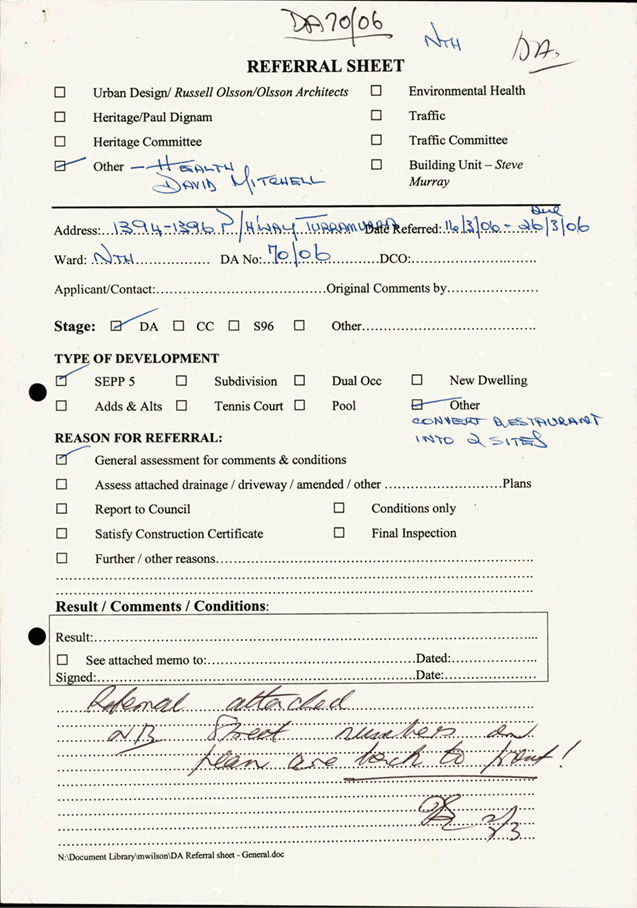 DA70/06
NTH
DA.
REFERRAL SHEET
☐ Urban Design/ Russell Olsson/Olsson Architects ☐ Environmental Health
☐ Heritage/Paul Dignam ☐ Traffic
☐ Heritage Committee ☐ Traffic Committee
☑ Other – HEALTH ☐ Building Unit – Steve
DAVID MITCHELL Murray
Due
Address: 1394-1396 P/H'WAY TURRAMURRA Date Referred: 16/3/06 - 26/3/06
Ward: NTH DA No: 70/06 DCO:
Applicant/Contact: Original Comments by
Stage: ☑ DA ☐ CC ☐ S96 ☐ Other
TYPE OF DEVELOPMENT
☑ SEPP 5 ☐ Subdivision ☐ Dual Occ ☐ New Dwelling
☐ Adds & Alts ☐ Tennis Court ☐ Pool ☑ Other
CONVERT RESTAURANT
INTO 2 SITES
REASON FOR REFERRAL:
☑ General assessment for comments & conditions
☐ Assess attached drainage / driveway / amended / other Plans
☐ Report to Council ☐ Conditions only
☐ Satisfy Construction Certificate ☐ Final Inspection
☐ Further / other reasons
Result / Comments / Conditions:
Result:
☐ See attached memo to: Dated:
Signed: Date:
Referral attached
NB Street numbers on
plan are back to front!
2/3
N:\Document Library\mwilson\DA Referral sheet - General.doc